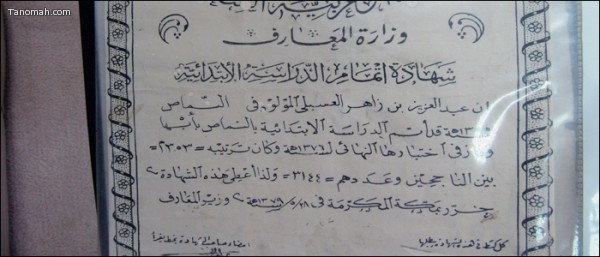 Tanomah.com
وزارة المعارف
شهادة اتمام الدراسة الابتدائية
إن عبدالعزيز بن زاهر العسبلي المولود في النماص
قد أتم الدراسة الابتدائية بالنماص بأبها
في اختبارها النهائي لـ ١٣٧٦هـ وكان ترتيبه = ٢٣٥٣ =
بين الناجحين وعددهم = ٣١٤٤ = ولذا أعطي هذه الشهادة
حرر بمكة المكرمة في وزير المعارف